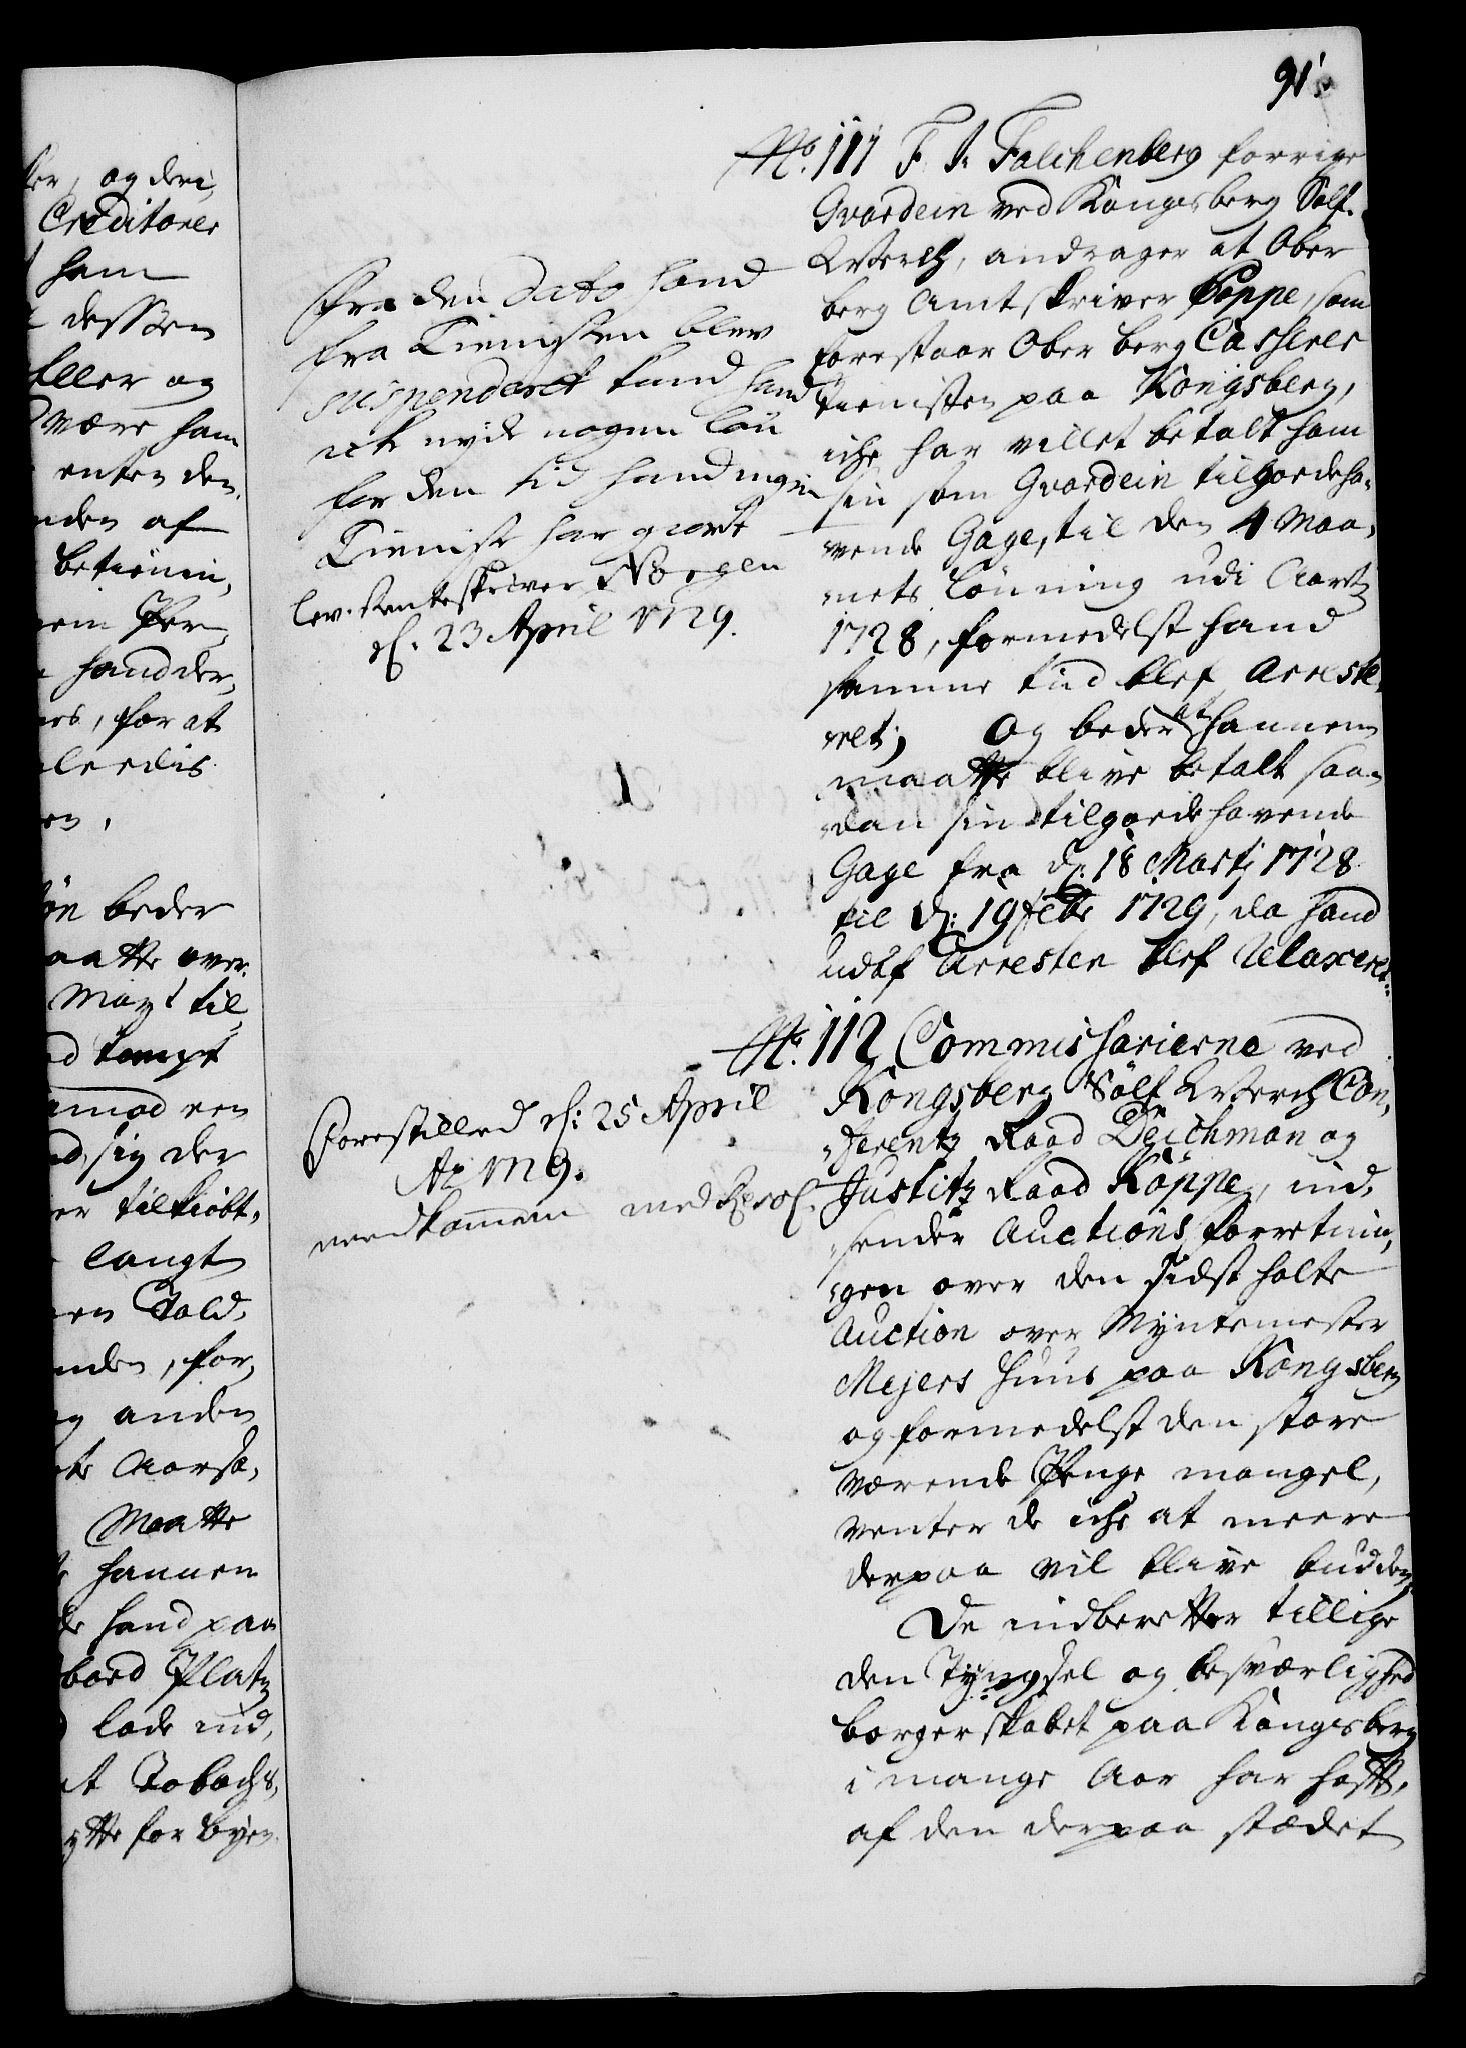 91.
No. 111 F. J. Falchenberg forrige
Gvardein ved Kongsberg Sølf-
Werch, andrager at Ober
berg Amtskriver Köppe, som
forestaar Ober berg Casserer
tienisten paa Kongsberg,
iche har villet betalt ham
sin som Gvardein tilgodeha-
vende Gage, til den 4 Maa-
nets Lønning udi Aaret
1728, formedelst hand
samme tiid blef Arreste-
ret; og beder at hannem
maatte blive betalt saa-
dan sin tilgodehavende
Gage fra d: 18 Martj 1728
til d: 19 Febr 1729, da hand
udaf Arresten blef Relaxeret.
Fra den Dato hand
fra Tienesten blev
suspenderet kand hand
ick nyde nogen løn
for den tid hand ingen
Tieniste har giort
lev. Renteskriver Nørgen
d: 23 April 1729.
No. 112 Commissarierne ved
Kongsberg Sølf Werch Con-
ferentz Raad Deichman og
Justitz Raad Köppe, ind-
sender Auctions forretnin-
gen over den sidst holte
Auction over Myntemester
Mejers Huus paa Kongsberg
og formedelst den store
værende Penge mangel,
venter de iche at meere
derpaa vil blive budden,
De indberetter tillige
den Tyngsel og besværlighed
borgerskabet paa Kongsberg
i mange Aar har hafft,
af den derpaa stædet
Forestilled d: 25 April
Ao 1729.
nedkommen med
er, og der
Creditorer
ham
dessen
eller og
være ham
enten den
nden af
betienin,
Per,
hand der,
for at
leedis
en,
beder
aatte over
Mart til,
d kempt
imod een
d, sig der
er tilkiøbt,
langt
en Told,
nden, for,
og anden
Aarsa,
Maatte
hannem
hand paa
boed Platz
lade ind,
at Tobachs,
tte for Byen.